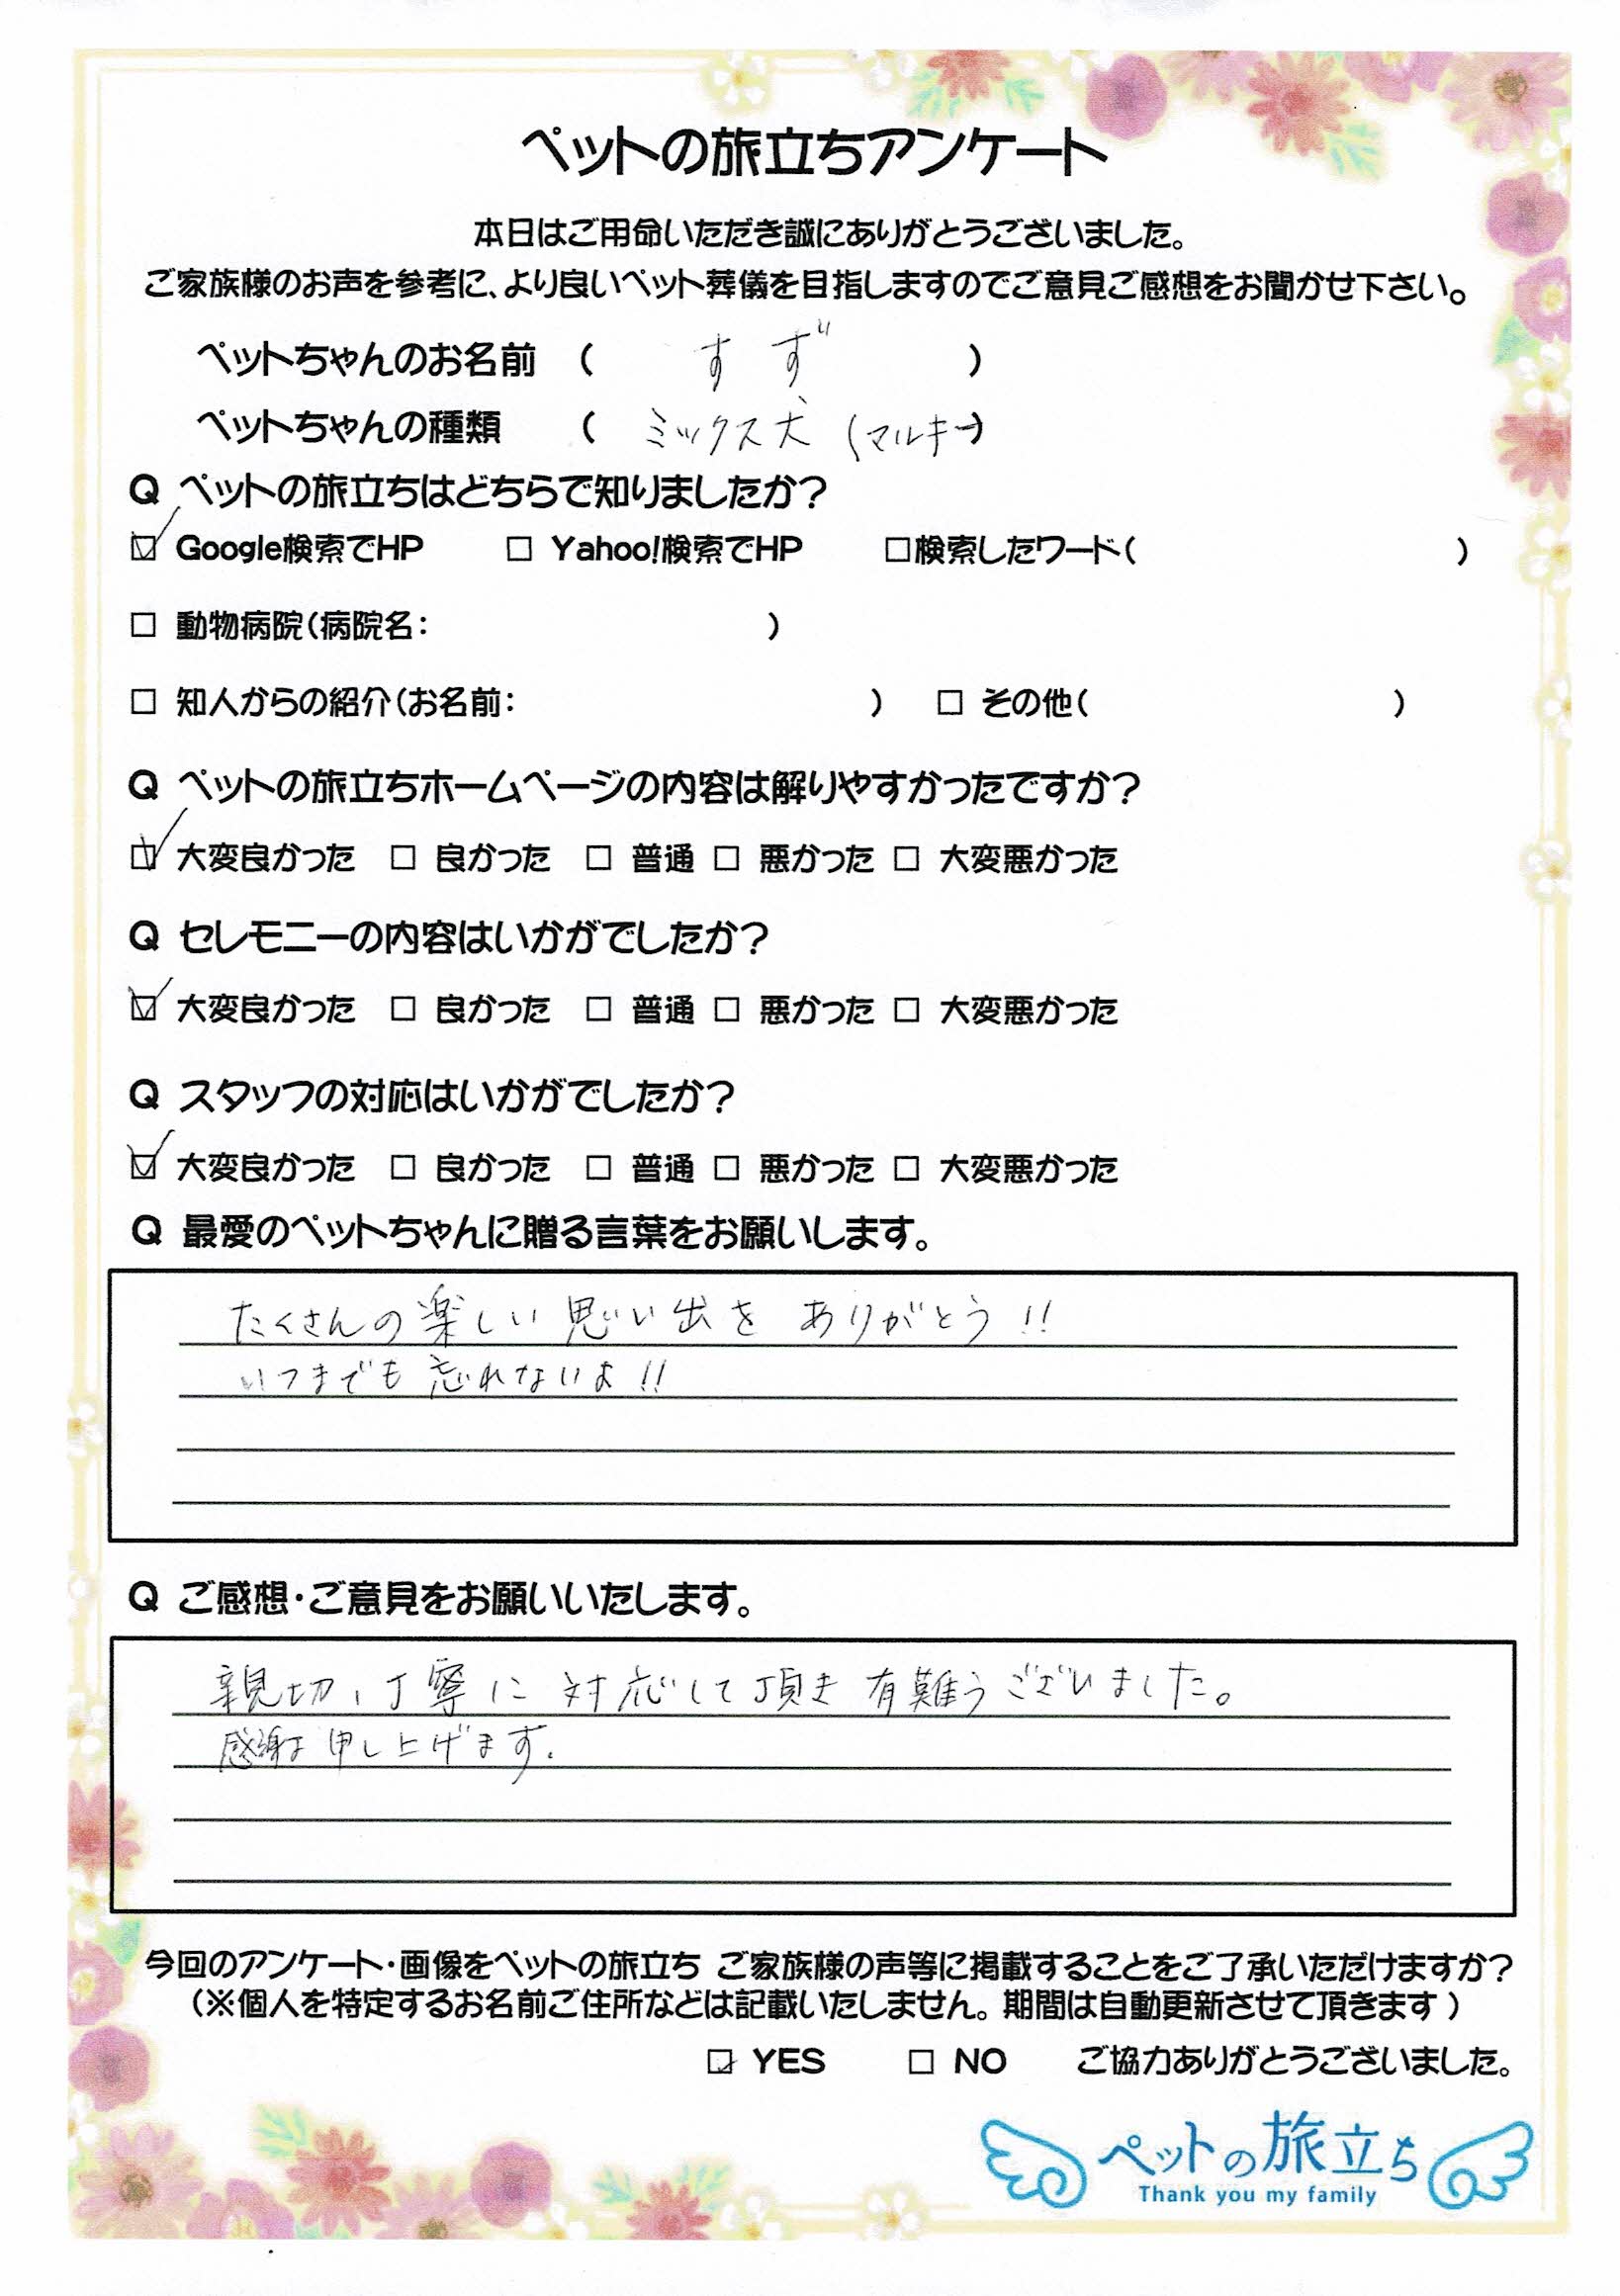 ペットの旅立ちアンケート
本日はご用命いただき誠にありがとうございました。
ご家族様のお声を参考に、より良いペット葬儀を目指しますのでご意見ご感想をお聞かせ下さい。
ペットちゃんのお名前 ( すず )
ペットちゃんの種類 ( ミックス犬 (マルキー)
Q ペットの旅立ちはどちらで知りましたか?
☑ Google検索でHP □ Yahoo!検索でHP □検索したワード( )
□ 動物病院(病院名: )
□ 知人からの紹介(お名前: ) □ その他( )
Q ペットの旅立ちホームページの内容は解りやすかったですか?
☑ 大変良かった □ 良かった □ 普通 □ 悪かった □ 大変悪かった
Q セレモニーの内容はいかがでしたか?
☑ 大変良かった □ 良かった □ 普通 □ 悪かった □ 大変悪かった
Q スタッフの対応はいかがでしたか?
☑ 大変良かった □ 良かった □ 普通 □ 悪かった □ 大変悪かった
Q 最愛のペットちゃんに贈る言葉をお願いします。
たくさんの楽しい思い出を ありがとう!!
いつまでも 忘れないよ!!
Q ご感想・ご意見をお願いいたします。
親切、丁寧に 対応して頂き 有難うございました。
感謝申し上げます。
今回のアンケート・画像をペットの旅立ち ご家族様の声等に掲載することをご了承いただけますか?
(※個人を特定するお名前ご住所などは記載いたしません。期間は自動更新させて頂きます)
☑ YES □ NO ご協力ありがとうございました。
ペットの旅立ち
Thank you my family